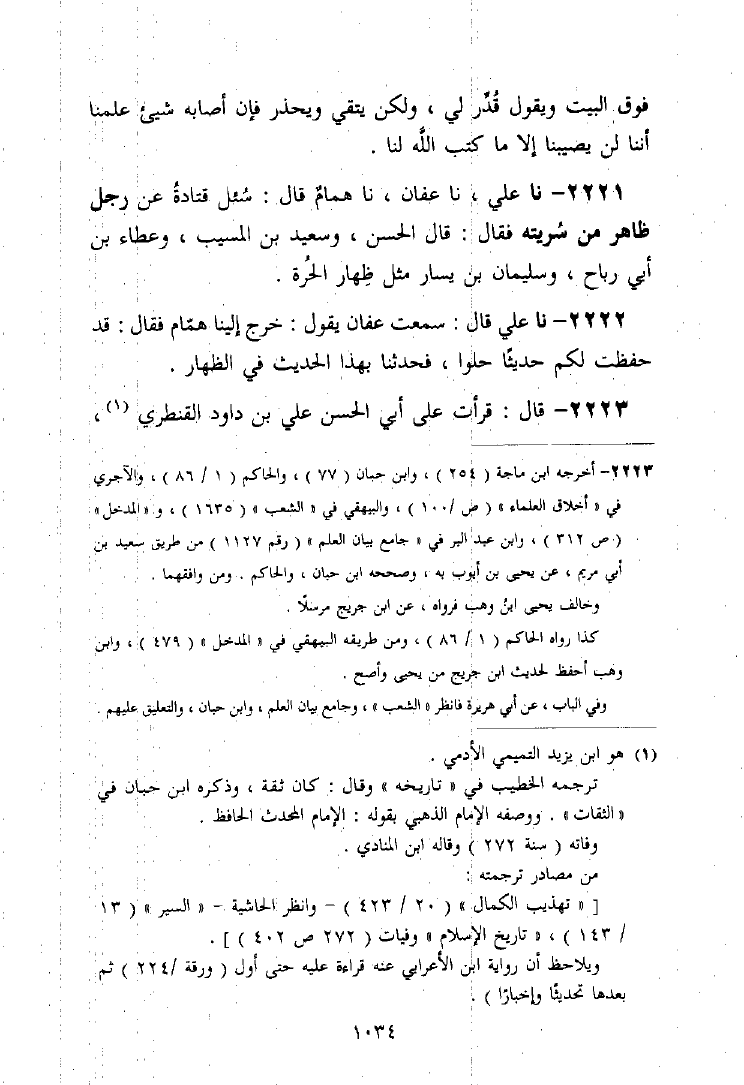 فوق البيت ويقول قُدِّر لي ، ولكن يتقي ويحذر فإن أصابه شيئ علمنا
أننا لن يصيبنا إلا ما كتب اللَّه لنا .
٢٢٢١- نا علي ، نا عفان ، نا همامٌ قال : سُئل قتادةُ عن رجل
ظاهر من سُريته فقال : قال الحسن ، وسعيد بن المسيب ، وعطاء بن
أبي رباح ، وسليمان بن يسار مثل ظِهار الحُرة .
٢٢٢٢- نا علي قال : سمعت عفان يقول : خرج إلينا همّام فقال : قد
حفظت لكم حديثًا حلوا ، فحدثنا بهذا الحديث في الظهار .
٢٢٢٣- قال : قرأت على أبي الحسن علي بن داود القنطري (١) ،
٢٢٢٣- أخرجه ابن ماجة ( ٢٥٤ ) ، وابن حبان ( ٧٧ ) ، والحاكم ( ١ / ٨٦ ) ، والآجري
في « أخلاق العلماء » ( ص /١٠٠ ) ، والبيهقي في « الشعب » ( ١٦٣٥ ) ، و « المدخل »
( ص ٣١٢ ) ، وابن عبد البر في « جامع بيان العلم » ( رقم ١١٢٧ ) من طريق سعيد بن
أبي مريم ، عن يحيى بن أيوب به ، وصححه ابن حبان ، والحاكم . ومن وافقهما .
وخالف يحيى ابنُ وهب فرواه ، عن ابن جريج مرسلًا .
كذا رواه الحاكم ( ١ / ٨٦ ) ، ومن طريقه البيهقي في « المدخل » ( ٤٧٩ ) ، وابن
وهب أحفظ لحديث ابن جريج من يحيى وأصح .
وفي الباب ، عن أبي هريرة فانظر « الشعب » ، وجامع بيان العلم ، وابن حبان ، والتعليق عليهم .
(١) هو ابن يزيد التميمي الأدمي .
ترجمه الخطيب في « تاريخه » وقال : كان ثقة ، وذكره ابن حبان في
« الثقات » . ووصفه الإمام الذهبي بقوله : الإمام المحدث الحافظ .
وفاته ( سنة ٢٧٢ ) وقاله ابن المنادي .
من مصادر ترجمته :
[ « تهذيب الكمال » ( ٢٠ / ٤٢٣ ) - وانظر الحاشية - « السير » ( ١٣
/ ١٤٣ ) ، « تاريخ الإسلام » وفيات ( ٢٧٢ ص ٤٠٢ ) ] .
ويلاحظ أن رواية ابن الأعرابي عنه قراءة عليه حتى أول ( ورقة /٢٢٤ ) ثم
بعدها تحديثًا وإخبارًا ) .
١٠٣٤